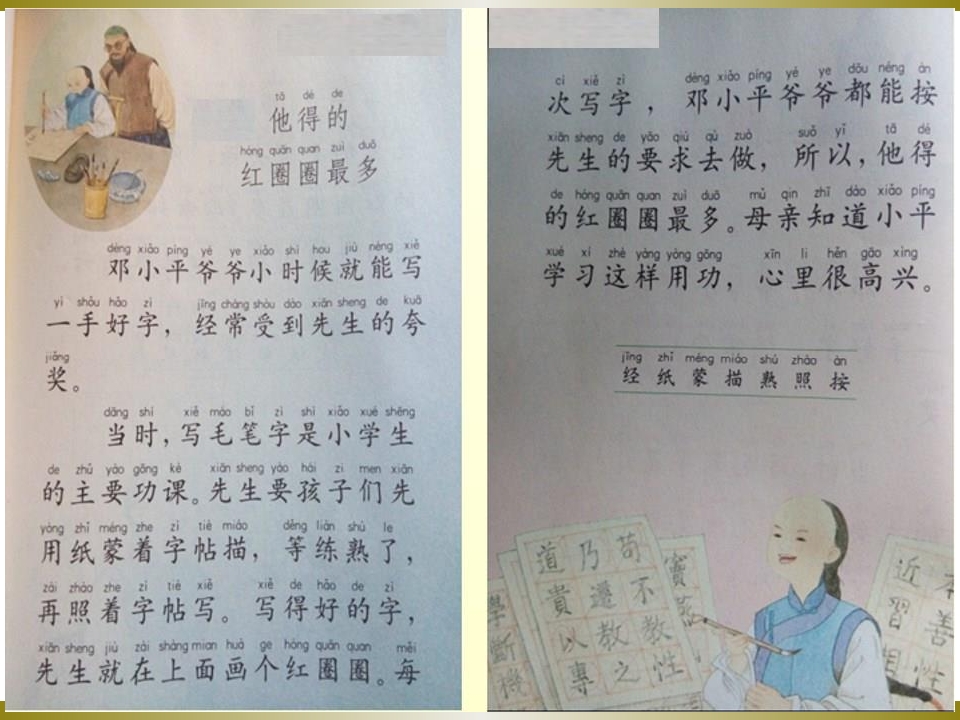 tā dé de
他得的
hóng quān quan zuì duō
红圈圈最多
dèng xiǎo píng yé ye xiǎo shí hou jiù néng xiě
邓小平爷爷小时候就能写
yì shǒu hǎo zì jīng cháng shòu dào xiān sheng de kuā
一手好字，经常受到先生的夸
jiǎng
奖。
dāng shí xiě máo bǐ zì shì xiǎo xué shēng
当时，写毛笔字是小学生
de zhǔ yào gōng kè xiān sheng yào hái zi men xiān
的主要功课。先生要孩子们先
yòng zhǐ méng zhe zì tiè miáo děng liàn shú le
用纸蒙着字帖描，等练熟了，
zài zhào zhe zì tiè xiě xiě de hǎo de zì
再照着字帖写。写得好的字，
xiān sheng jiù zài shàng mian huà ge hóng quān quan měi
先生就在上面画个红圈圈。每
cì xiě zì dèng xiǎo píng yé ye dōu néng àn
次写字，邓小平爷爷都能按
xiān sheng de yāo qiú qù zuò suǒ yǐ tā dé
先生的要求去做，所以，他得
de hóng quān quan zuì duō mǔ qin zhī dào xiǎo píng
的红圈圈最多。母亲知道小平
xué xí zhè yàng yòng gōng xīn li hěn gāo xìng
学习这样用功，心里很高兴。
jīng zhǐ méng miáo shú zhào àn
经纸蒙描熟照按
苟不教性
乃遷教之
道貴以專
學斷機
本善性
近習相